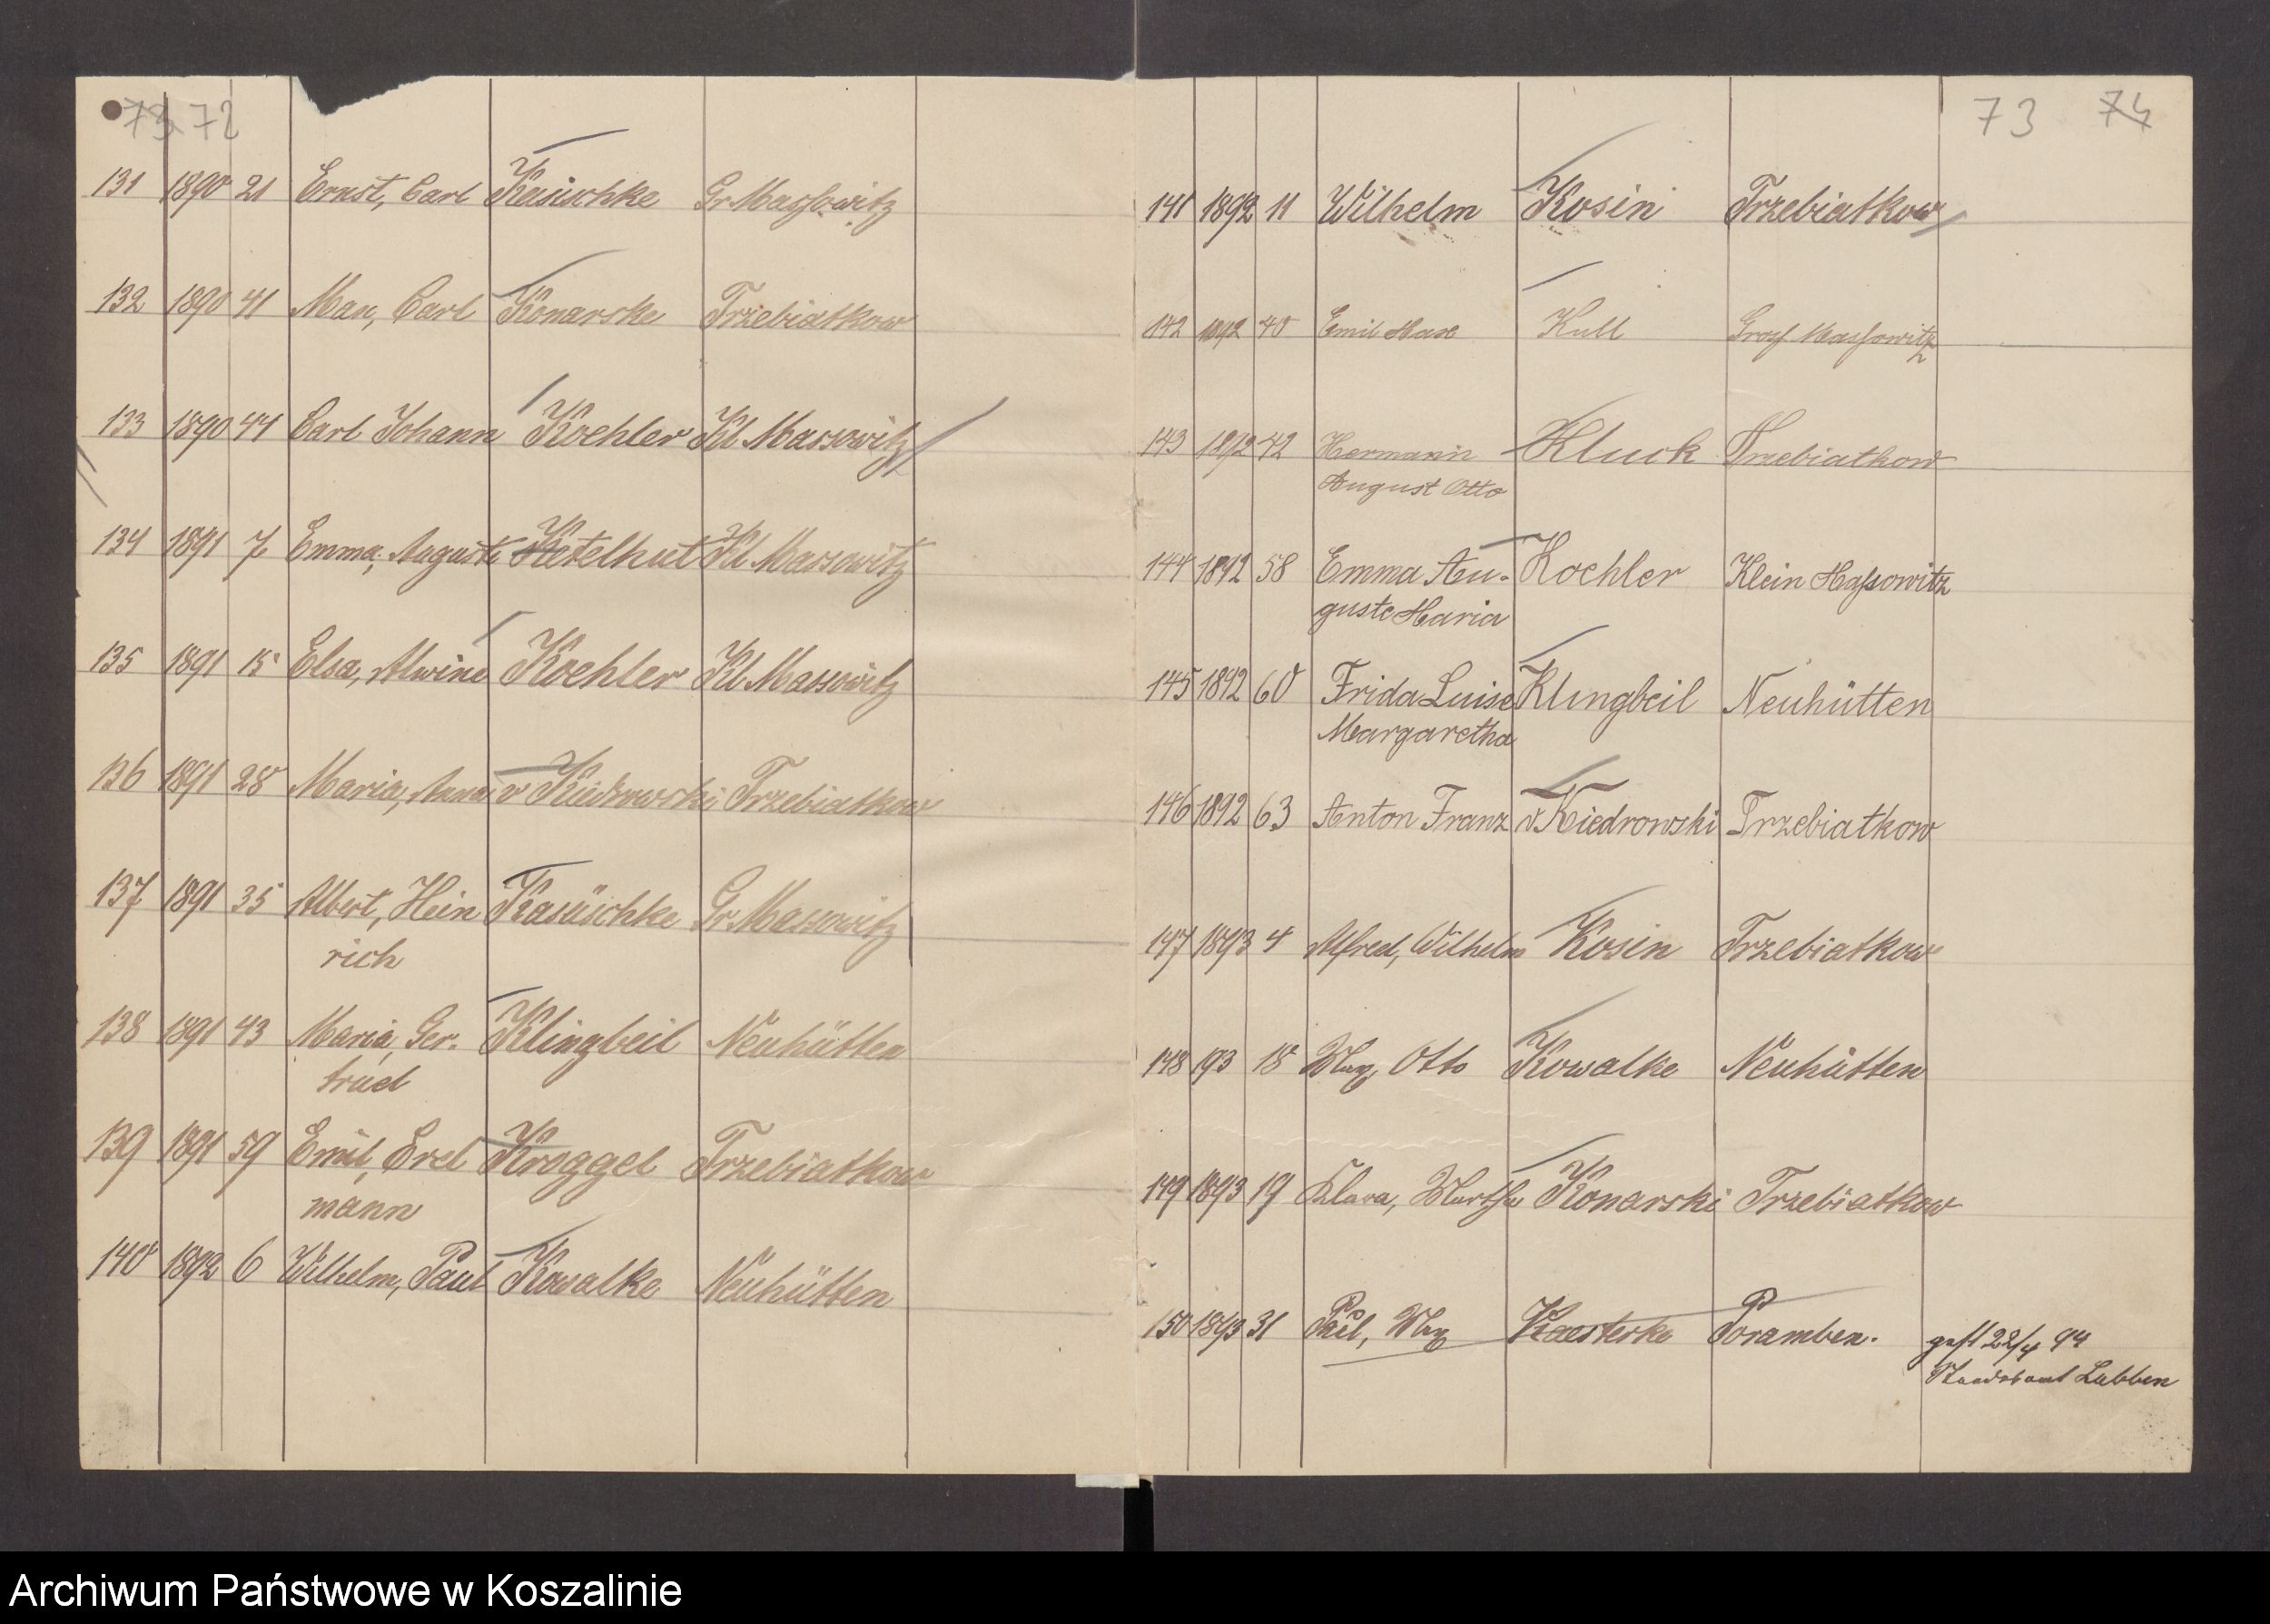 73 72
131 1890 21 Ernst, Carl Kasischke Gr Massowitz
132 1890 41 Max, Carl Konarske Trzebiatkow
133 1890 44 Carl Johann Koehler Kl Massowitz
134 1891 7 Emma, Auguste Ketelhut Kl Massowitz
135 1891 15 Elsa, Alwine Koehler Kl Massowitz
136 1891 28 Maria, Anna v Kiedrowski Trzebiatkow
137 1891 35 Albert, Hein Kasischke Gr. Massowitz
rich
138 1891 43 Maria, Ger- Klingbeil Neuhütten
trud
139 1891 59 Emil, Erd Kroggel Trzebiatkow
mann
140 1892 6 Wilhelm, Paul Kowalke Neuhütten
73 74
141 1892 11 Wilhelm Kosin Trzebiatkow
142 1892 40 Emil Max Kull Groß Massowitz
143 1892 42 Hermann Kluck Trzebiatkow
August Otto
144 1892 58 Emma Au- Koehler Klein Maßowitz
guste Maria
145 1892 60 Frida Luise Klingbeil Neuhütten
Margaretha
146 1892 63 Anton Franz v. Kiedrowski Trzebiatkow
147 1893 4 Alfred, Wilhelm Kosin Trzebiatkow
148 193 18 Max, Otto Kowalke Neuhütten
149 1893 19 Klara, Martha Konarski Trzebiatkow
150 1893 31 Paul, Max Kaesterke Poramben. gest 22/4 94
Standesamt Lubben
Archiwum Państwowe w Koszalinie